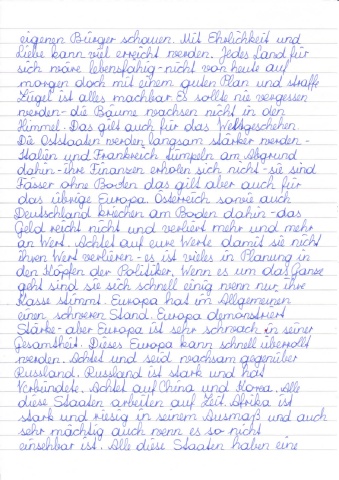 eigenen Bürger schauen. Mit Ehrlichkeit und
Liebe kann viel erreicht werden. Jedes Land für
sich wäre lebensfähig - nicht von heute auf
morgen doch mit einem guten Plan und straffe
Zügel ist alles machbar. Es sollte nie vergessen
werden - die Bäume wachsen nicht in den
Himmel. Das gilt auch für das Weltgeschehen.
Die Oststaaten werden langsam stärker werden -
Italien und Frankreich tümpeln am Abgrund
dahin - ihre Finanzen erholen sich nicht - sie sind
Fässer ohne Boden das gilt aber auch für
das übrige Europa. Österreich sowie auch
Deutschland kriechen am Boden dahin - das
Geld reicht nicht und verliert mehr und mehr
an Wert. Achtet auf eure Werte damit sie nicht
ihren Wert verlieren - es ist vieles in Planung in
den Köpfen der Politiker. Wenn es um das Ganze
geht sind sie sich schnell einig wenn nur ihre
Kasse stimmt. Europa hat im Allgemeinen
einen schweren Stand. Europa demonstriert
Stärke - aber Europa ist sehr schwach in seiner
Gesamtheit. Dieses Europa kann schnell überrollt
werden. Achtet und seid wachsam gegenüber
Russland. Russland ist stark und hat
Verbündete. Achtet auf China und Korea. Alle
diese Staaten arbeiten auf Zeit. Afrika ist
stark und riesig in seinem Ausmaß und auch
sehr mächtig auch wenn es so nicht
einsehbar ist. Alle diese Staaten haben eine